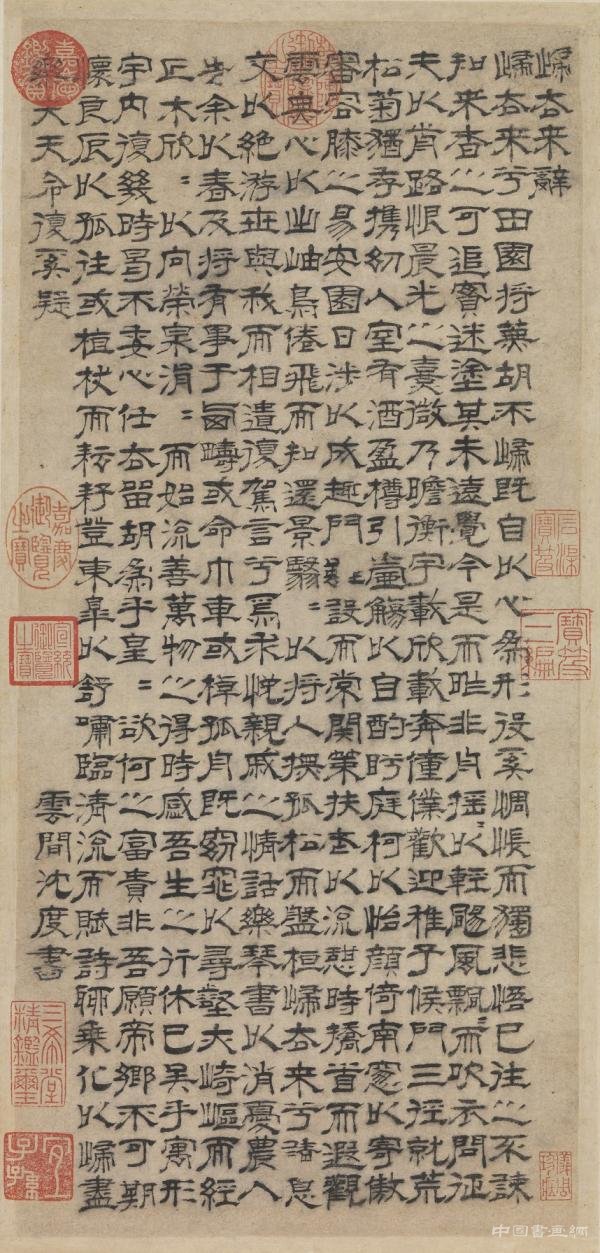 歸去来辭
歸去来兮田園将蕪胡不歸既自以心為形役奚惆悵而獨悲悟已往之不諫
知来者之可追實迷塗其未遠覺今是而昨非舟摇〻以輕颺風飄〻而吹衣問征
夫以前路恨晨光之熹微乃瞻衡宇載欣載奔僮僕歡迎稚子候門三徑就荒
松菊猶存攜幼入室有酒盈樽引壺觴以自酌眄庭柯以怡顔倚南窓以寄傲
審容膝之易安園日涉以成趣門雖設而常關策扶老以流憩時矯首而遐觀
雲無心以出岫鳥倦飛而知還景翳〻以将入撫孤松而盤桓歸去来兮請息
交以絶游世與我而相遺復駕言兮焉求悦親戚之情話樂琴書以消憂農人
告余以春及将有事于西疇或命巾車或棹孤舟既窈窕以尋壑亦崎嶇而經
丘木欣〻以向榮泉涓〻而始流善萬物之得時感吾生之行休已矣乎寓形
宇内復幾時曷不委心任去留胡為乎皇〻欲何之富貴非吾願帝鄉不可期
懷良辰以孤往或植杖而耘耔登東皋以舒嘯臨清流而賦詩聊乘化以歸盡
樂夫天命復奚疑
雲間沈度書
石渠寶笈
寶笈三編
嘉慶鑑賞
嘉慶御覽之寶
宣統御覽之寶
三希堂精鑑璽
宜子孫
中國書畫網